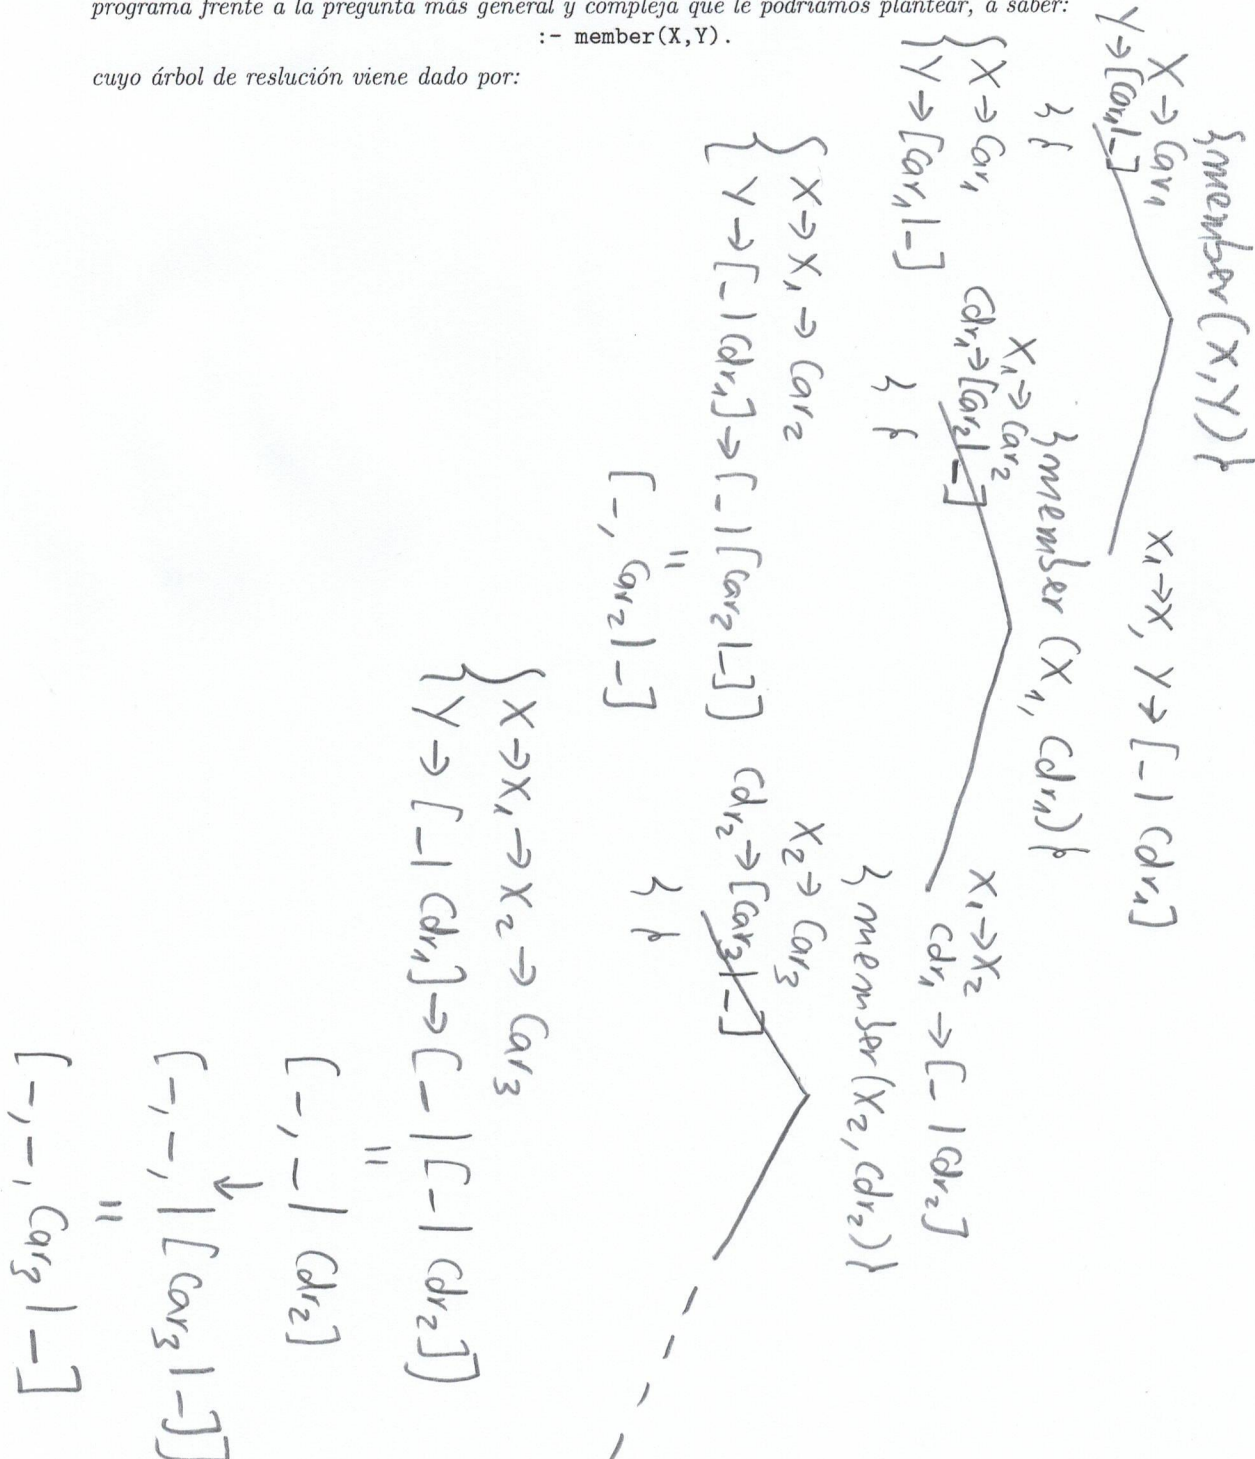 programa frente a la pregunta más general y compleja que le podríamos plantear, a saber:
:- member(X,Y).
cuyo árbol de reslución viene dado por:
{member(X,Y)}
X→Car₁
Y→[Car₁|_]
X₁→X, Y→[_|Cdr₁]
{ }
{member(X₁, Cdr₁)}
{X→Car₁
{Y→[Car₁|_]
X₁→Car₂
Cdr₁→[Car₂|_]
X₁→X₂
Cdr₁→[_|Cdr₂]
{ }
{member(X₂, Cdr₂)}
{X→X₁→Car₂
{Y→[_|Cdr₁]→[_|[Car₂|_]]
"
[_, Car₂|_]
X₂→Car₃
Cdr₂→[Car₃|_]
{ }
{X→X₁→X₂→Car₃
{Y→[_|Cdr₁]→[_|[_|Cdr₂]]
"
[_,_|Cdr₂]
↓
[_,_,|[Car₃|_]]
"
[_,_, Car₃|_]